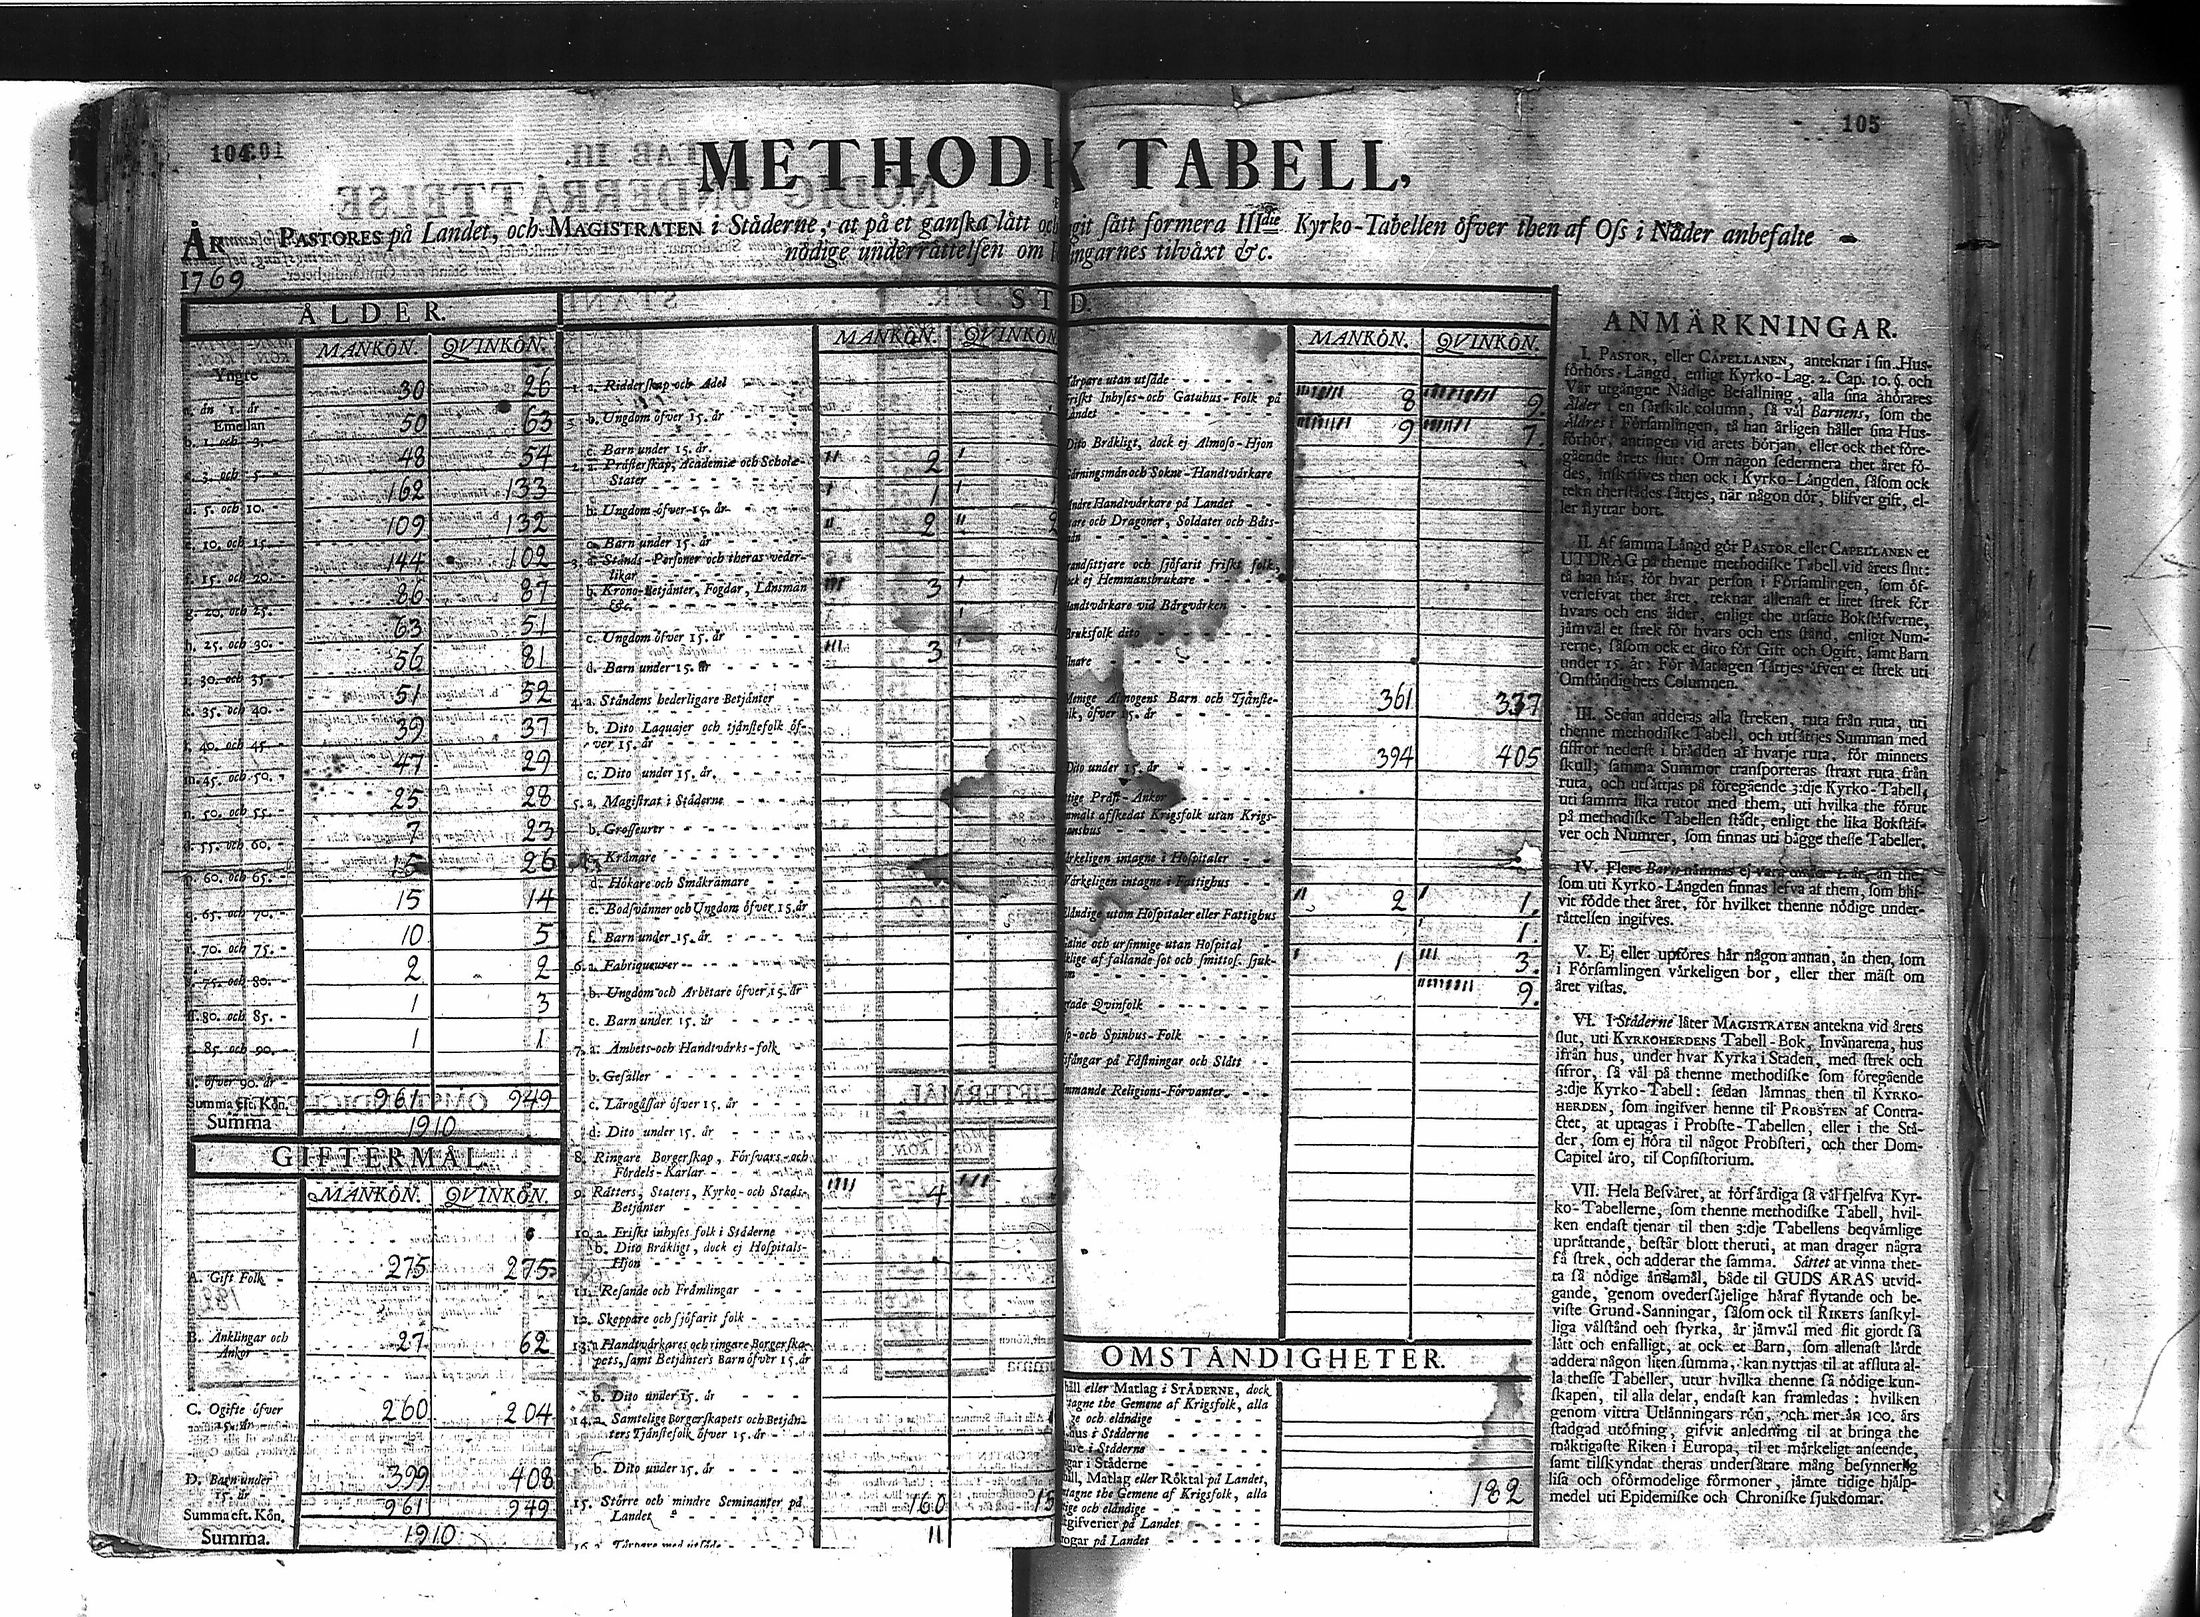 104
105
METHODIK TABELL,
ÅR PASTORES på Landet, och MAGISTRATEN i Städerne, at på et ganska lätt och git sätt formera IIIdie Kyrko-Tabellen öfver then af Oss i Nåder anbefalte
1769 nödige underrättelsen om ngarnes tilväxt &c.
ÅLDER.
MANKÖN. QVINKÖN.
Yngre än 1. år - 30 26
Emellan
b. 1. och 3. 50 63
c. 3. och 5. 48 54
d. 5. och 10. 162 133
e. 10. och 15. 109 132
f. 15. och 20. 144 102
g. 20. och 25. 86 87
h. 25. och 30. 63 51
i. 30. och 35. 56 81
k. 35. och 40. 51 52
l. 40. och 45. 39 37
m. 45. och 50. 47 29
n. 50. och 55. 25 28
o. 55. och 60. 7 23
p. 60. och 65. 15 26
q. 65. och 70. 15 14
r. 70. och 75. 10 5
s. 75. och 80. 2 2
ss. 80. och 85. 1 3
t. 85. och 90. 1 1
öfver 90. år
Summa eft. Kön. 961 949
Summa 1910
GIFTERMÅL.
MANKÖN. QVINKÖN.
A. Gift Folk - 275 275
B. Änklingar och Änkor 27 62
C. Ogifte öfver 15. år 260 204
D. Barn under 15. år 399 408
Summa eft. Kön. 961 949
Summa. 1910
ST D.
MANKÖN. QVINKÖN.
1. a. Ridderskap och Adel
b. Ungdom öfver 15. år
c. Barn under 15. år.
2. a. Prästerskap, Academiæ och Scholæ-
Stater 2
b. Ungdom öfver 15. år 1
c. Barn under 15. år 2 2
3. a. Stånds-Personer och theras veder-
likar 3
b. Krono-Betjänter, Fogdar, Länsmän
&c.
c. Ungdom öfver 15. år 3
d. Barn under 15. år
4. a. Ståndens hederligare Betjänter
b. Dito Laquajer och tjänstefolk öf-
ver 15. år
c. Dito under 15. år.
5. a. Magistrat i Städerne
b. Grosseurer
c. Krämare
d. Hökare och Småkrämare
e. Bodsvänner och Ungdom öfver 15. år
f. Barn under 15. år.
6. a. Fabriqueurer
b. Ungdom och Arbetare öfver 15. år
c. Barn under 15. år
7. a. Ämbets-och Handtvärks-folk
b. Gesäller
c. Lärogåssar öfver 15. år
d. Dito under 15. år
8. Ringare Borgerskap, Försvars-och
Fördels-Karlar
9. Rätters, Staters, Kyrko- och Stads-
Betjänter 4
10. a. Friskt inhyses folk i Städerne
b. Dito Bräkligt, dock ej Hospitals-
Hjon
11. Resande och Främlingar
12. Skeppare och sjöfarit folk
13. a Handtvärkares och ringare Borgerska-
pets, samt Betjänters Barn öfver 15. år
b. Dito under 15. år
14. a. Samtelige Borgerskapets och Betjän-
ters Tjänstefolk öfver 15. år
b. Dito under 15. år
15. Större och mindre Seminanter på
Landet 160 15
16. a. Torpare med utsäde 11
MANKÖN. QVINKÖN.
orpare utan utsäde
riskt Inhyses-och Gatuhus-Folk på
Landet 8 9.
Dito Bräkligt, dock ej Almoso-Hjon 9 7.
ärningsmän och Sokne-Handtvärkare
ndre Handtvärkare på Landet
are och Dragoner, Soldater och Båts-
män
andsittjare och sjöfarit friskt folk,
ock ej Hemmansbrukare
andtvärkare vid Bärgvärken
Bruksfolk dito
lnare
Menige Almogens Barn och Tjänste-
olk, öfver 15. år 361 337
Dito under 15. år 394 405
tige Präst-Änkor
nmält afskedat Krigsfolk utan Krigs-
manshus
ärkeligen intagne i Hospitaler
Värkeligen intagne i Fattighus
ländige utom Hospitaler eller Fattighus 2 1.
alne och ursinnige utan Hospital 1.
klige af fallande sot och smittos. sjuk-
om 1 3.
tade Qvinfolk 9.
sp-och Spinhus-Folk
sfångar på Fästningar och Slått
mmande Religions-Förvanter
OMSTÄNDIGHETER.
håll eller Matlag i STÄDERNE, dock
tagne the Gemene af Krigsfolk, alla
ige och eländige
hus i Städerne
are i Städerne
gar i Städerne
håll, Matlag eller Röktal på Landet,
tagne the Gemene af Krigsfolk, alla
tige och eländige 182
tgifverier på Landet
rogar på Landet
ANMÄRKNINGAR.
I. PASTOR, eller CAPELLANEN, anteknar i sin Hus-
förhörs-Längd, enligt Kyrko-Lag. 2. Cap. 10. §. och
Vår utgångne Nådige Befallning, alla sina åhörares
Ålder i en särskilt column, så väl Barnens, som the
Äldres i Församlingen, tå han årligen håller sina Hus-
förhör, antingen vid årets början, eller ock thet före-
gående årets slut: Om någon sedermera thet året fö-
des, inskrifves then ock i Kyrko-Längden, såsom ock
tekn therstädes sättjes, när någon dör, blifver gift, el-
ler flyttar bort.
II. Af samma Längd gör PASTOR eller CAPELLANEN et
UTDRAG på thenne methodiske Tabell vid årets slut:
tå han här, för hvar person i Församlingen, som öf-
verlefvat thet året, teknar allenast et litet strek för
hvars och ens ålder, enligt the utsatte Bokstäfverne,
jämväl et strek för hvars och ens stånd, enligt Num-
rerne, såsom ock et dito för Gift och Ogift, samt Barn
under 15. år: För Matlagen sättjes äfven et strek uti
Omständighets Columnen.
III. Sedan adderas alla streken, ruta från ruta, uti
thenne methodiske Tabell, och utsättjes Summan med
siffror nederst i brädden af hvarje ruta, för minnets
skull; samma Summor transporteras straxt ruta från
ruta, och utsättjas på föregående 3:dje Kyrko-Tabell,
uti samma lika rutor med them, uti hvilka the förut
på methodiske Tabellen städt, enligt the lika Bokstäf-
ver och Numrer, som finnas uti bägge thesse Tabeller.
IV. Flere Barn nämnas ej vara under 1. år, än the,
som uti Kyrko-Längden finnas lefva af them, som blif-
vit födde thet året, för hvilket thenne nödige under-
rättelsen ingifves.
V. Ej eller upföres här någon annan, än then, som
i Församlingen värkeligen bor, eller ther mäst om
året vistas.
VI. I Städerne låter MAGISTRATEN antekna vid årets
slut, uti KYRKOHERDENS Tabell-Bok, Invånarena, hus
ifrån hus, under hvar Kyrka i Staden, med strek och
sifror, så väl på thenne methodiske som föregående
3:dje Kyrko-Tabell: sedan lämnas then til KYRKO-
HERDEN, som ingifver henne til PROBSTEN af Contra-
ctet, at uptagas i Probste-Tabellen, eller i the Stä-
der, som ej höra til något Probsteri, och ther Dom-
Capitel äro, til Consistorium.
VII. Hela Besväret, at förfärdiga så väl sjelfva Kyr-
ko-Tabellerne, som thenne methodiske Tabell, hvil-
ken endast tjenar til then 3:dje Tabellens beqvämlige
uprättande, består blott theruti, at man drager några
få strek, och adderar the samma. Sättet at vinna thet-
ta så nödige ändamål, både til GUDS ÄRAS utvid-
gande, genom ovedersäjelige häraf flytande och be-
viste Grund-Sanningar, såsom ock til RIKETS sanskyl-
liga välstånd och styrka, är jämväl med flit gjordt så
lätt och enfalligt, at ock et Barn, som allenast lärdt
addera någon liten summa, kan nyttjas til at afsluta al-
la thesse Tabeller, utur hvilka thenne så nödige kun-
skapen, til alla delar, endast kan framledas: hvilken
genom vittra Utlänningars rön, och mer än 100. års
stadgad utöfning, gifvit anledning til at bringa the
mäktigaste Riken i Europa, til et märkeligt anseende,
samt tilskyndat theras undersåtare mång besynnerlig
lisa och oförmodelige förmoner, jämte tidige hjälp-
medel uti Epidemiske och Chroniske sjukdomar.